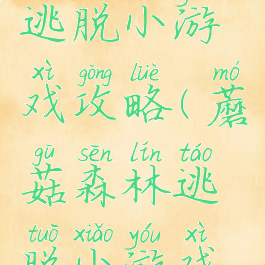 逃脱小游
xì gōng lüè mó
戏攻略(蘑
gū sēn lín táo
菇森林逃
tuō xiǎo yóu xì
脱小游戏